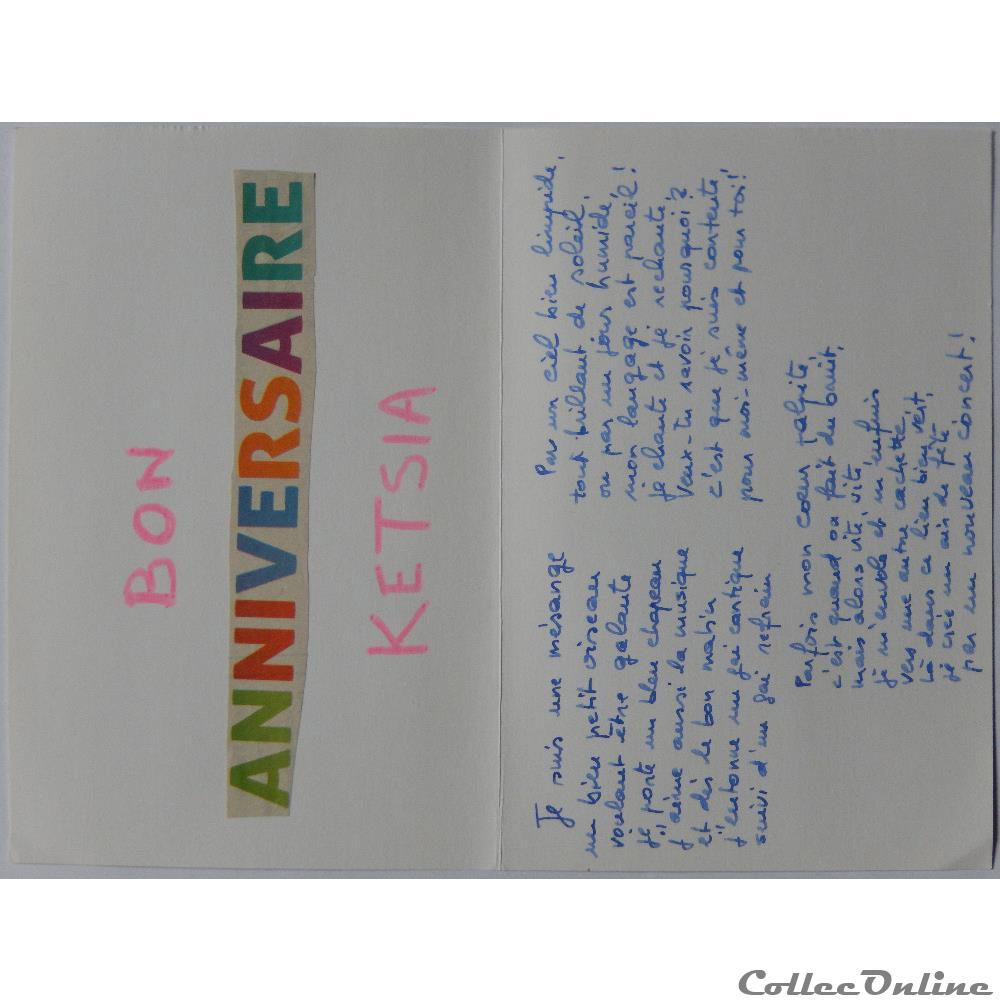 BON
ANNIVERSAIRE
KETSIA
Je suis une mésange
un bien petit oiseau
voulant être galante
je porte un bleu chapeau
j'aime aussi la musique
et dès le bon matin
j'entonne un gai cantique
suivi d'un gai refrain
Par un ciel bien limpide,
tout brillant de soleil,
ou par un jour humide,
mon langage est pareil!
je chante et je rechante,
Veux-tu savoir pourquoi?
c'est que je suis contente,
pour moi-même et pour toi!
Parfois mon coeur palpite,
c'est quand on fait du bruit,
mais alors vite, vite
je m'envole et m'enfuis
vers une autre cachette,
là dans ce lieu bien vert,
je crie un air de fête
par un nouveau concert!
CollecOnline